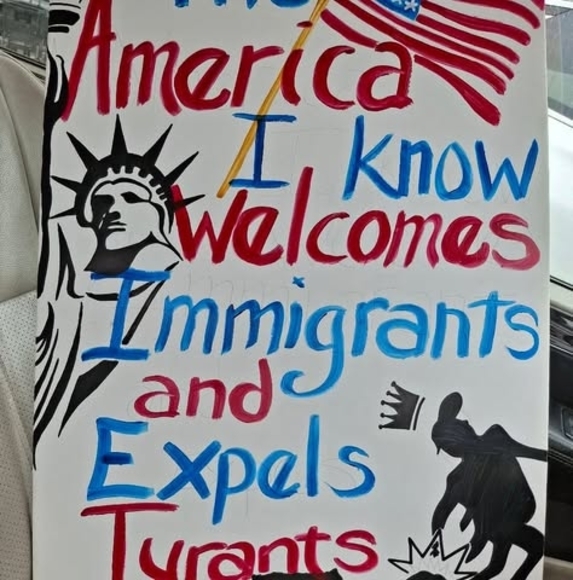 The
America
I know
Welcomes
Immigrants
and
Expels
Tyrants